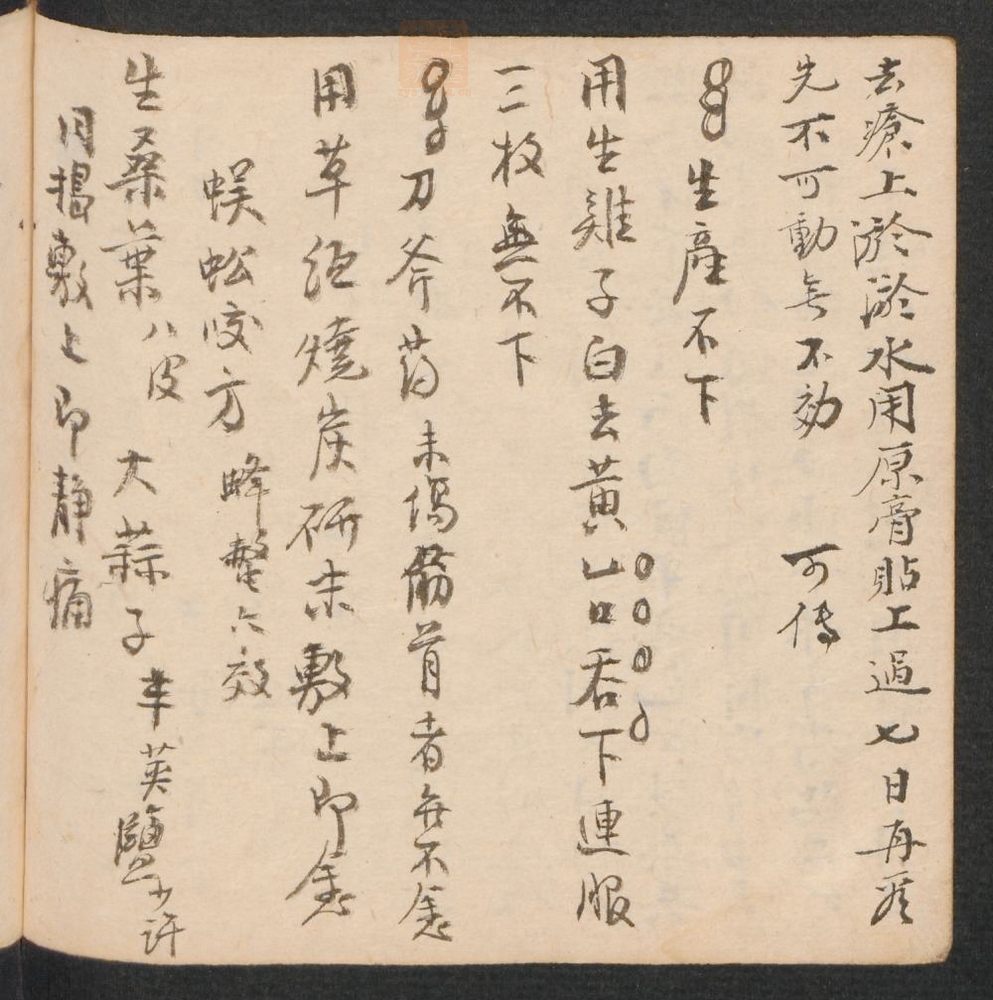 去瘡上淤淤水用原膏貼上過七日再看
先不可動無不効　可傳
生産不下
用生雞子白去黃 口吞下連服
一二枚無不下
刀斧药未傷筋骨者無不愈
用草紙燒炭研末敷上即愈
蜈蚣咬方　蜂螫亦效
生桑葉八皮　大蒜子 鹽少許
同搗敷上即靜痛